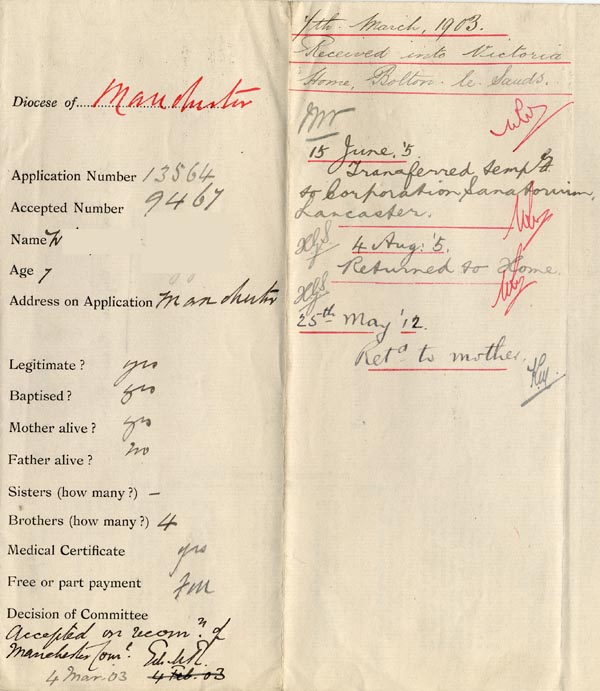 Diocese of Manchester
Application Number 13564
Accepted Number 9467
Name
Age 7
Address on Application Manchester
Legitimate? yes
Baptised? yes
Mother alive? yes
Father alive? no
Sisters (how many?) –
Brothers (how many?) 4
Medical Certificate yes
Free or part payment
Decision of Committee
Accepted on recomn. of
Manchester Comt.
4 Mar. 03 4 Feb. 03
7th March, 1903.
Received into Victoria
Home, Bolton-le-Sands.
15 June. '5.
Transferred temply
to Corporation Sanatorium,
Lancaster.
4 Aug: '5.
Returned to Home.
25th May '12.
Retd to mother.